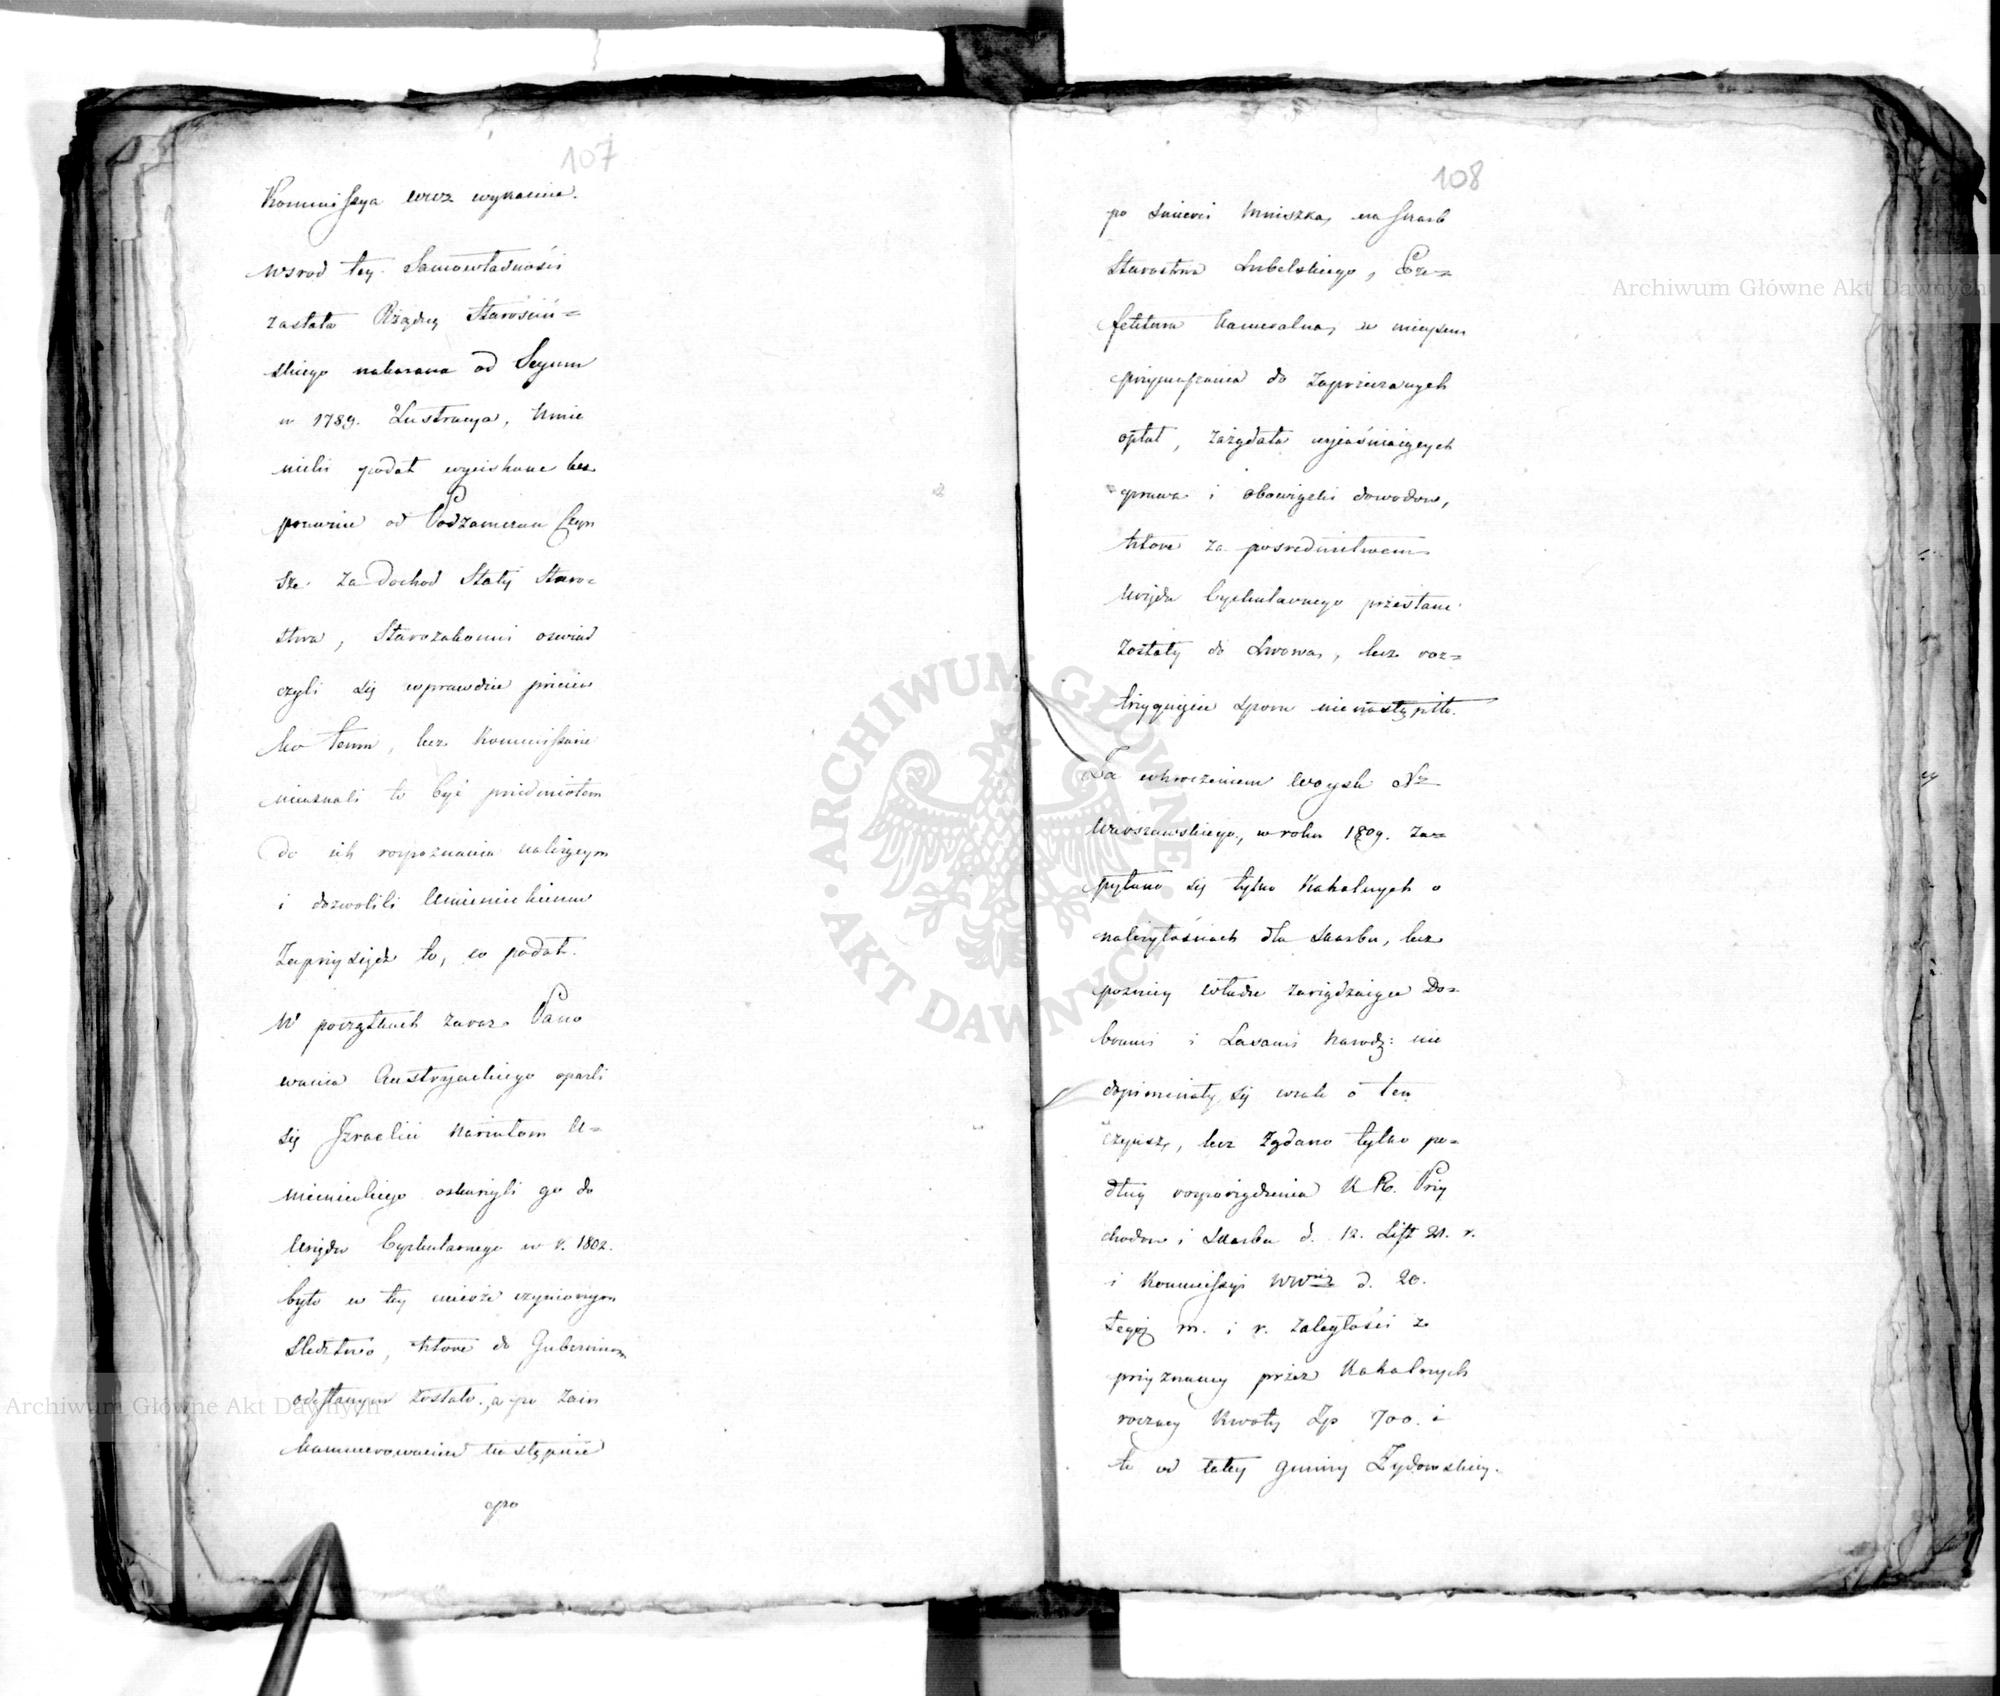 107
Kommissya wraz wykaenie.
wsrod tey Samowładności
zastała Rządcę Starościń=
skiego nakazana od Seymu
w 1789. Lustracya, Umie
nicki podał wyciskane bez
prawnie od Podzamczan Czyn
sze za Dochod Stały Staro=
stwa, Starozakonni oswiad
czyli się wprawdzie przeciw
ko temu, lecz Kommissarze
nieuznali to być przedmiotem
do ich rozpoznania należącym
i dozwolili Umienickiemu
Zaprzysiądz to, co podał.
W początkach zaraz Pano
wania Austryackiego oparli
się Izraelici U=
mienickiego oskarzyli go do
Urzędu Cyrkularnego w r. 1802.
było w tey mierze czynionym
Sledztwo, ktore do Gubernium
odesłanym zostało, a po zain
kammerowaniu nastąpnie
po
108
po śmierci Mniszka, na skarb
Starostwa Lubelskiego, Pre=
fektura Kameralna, w mieysce
przymuszania do Zaprzeczanych
opłat, zażądała wyjaśniaiących
prawa i obowiązki dowodow,
ktore za posrednictwem
Urzędu Cyrkularnego przesłane
zostały do Lwowa, lecz roz=
trzygnięcie sporu nienastąpiło.
Za wkroczeniem Woysk Xa
Warszawskiego, w roku 1809. Za=
pytano się tylko Kahalnych o
należytościach dla skarbu, lecz
pozniey władze zarządzaiące Do=
brami i Lasami Narodz: nie
dopominały się wcale o ten
czynsz, lecz żądano tylko po=
dług rozporządzenia K R. Przy
chodow i Skarbu d. 12. List 21. r.
i Kommissyi Wwniz d. 20.
tegoż m. i r. zaległości z
przyznaney przez Kahalnych
roczney kwoty Zp 700. i
to od całey gminy Żydowskiey.
ARCHIWUM GŁÓWNE AKT DAWNYCH
Archiwum Główne Akt Dawnych
Archiwum Główne Akt Dawnych